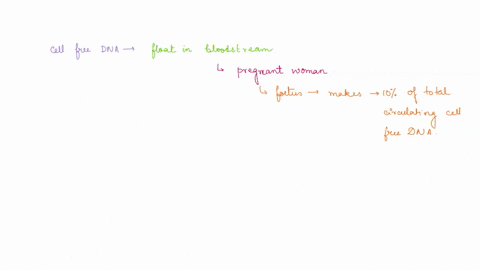 cell free DNA → float in bloodstream
↳ pregnant woman
↳ foetus → makes → 10% of total
circulating cell
free DNA.